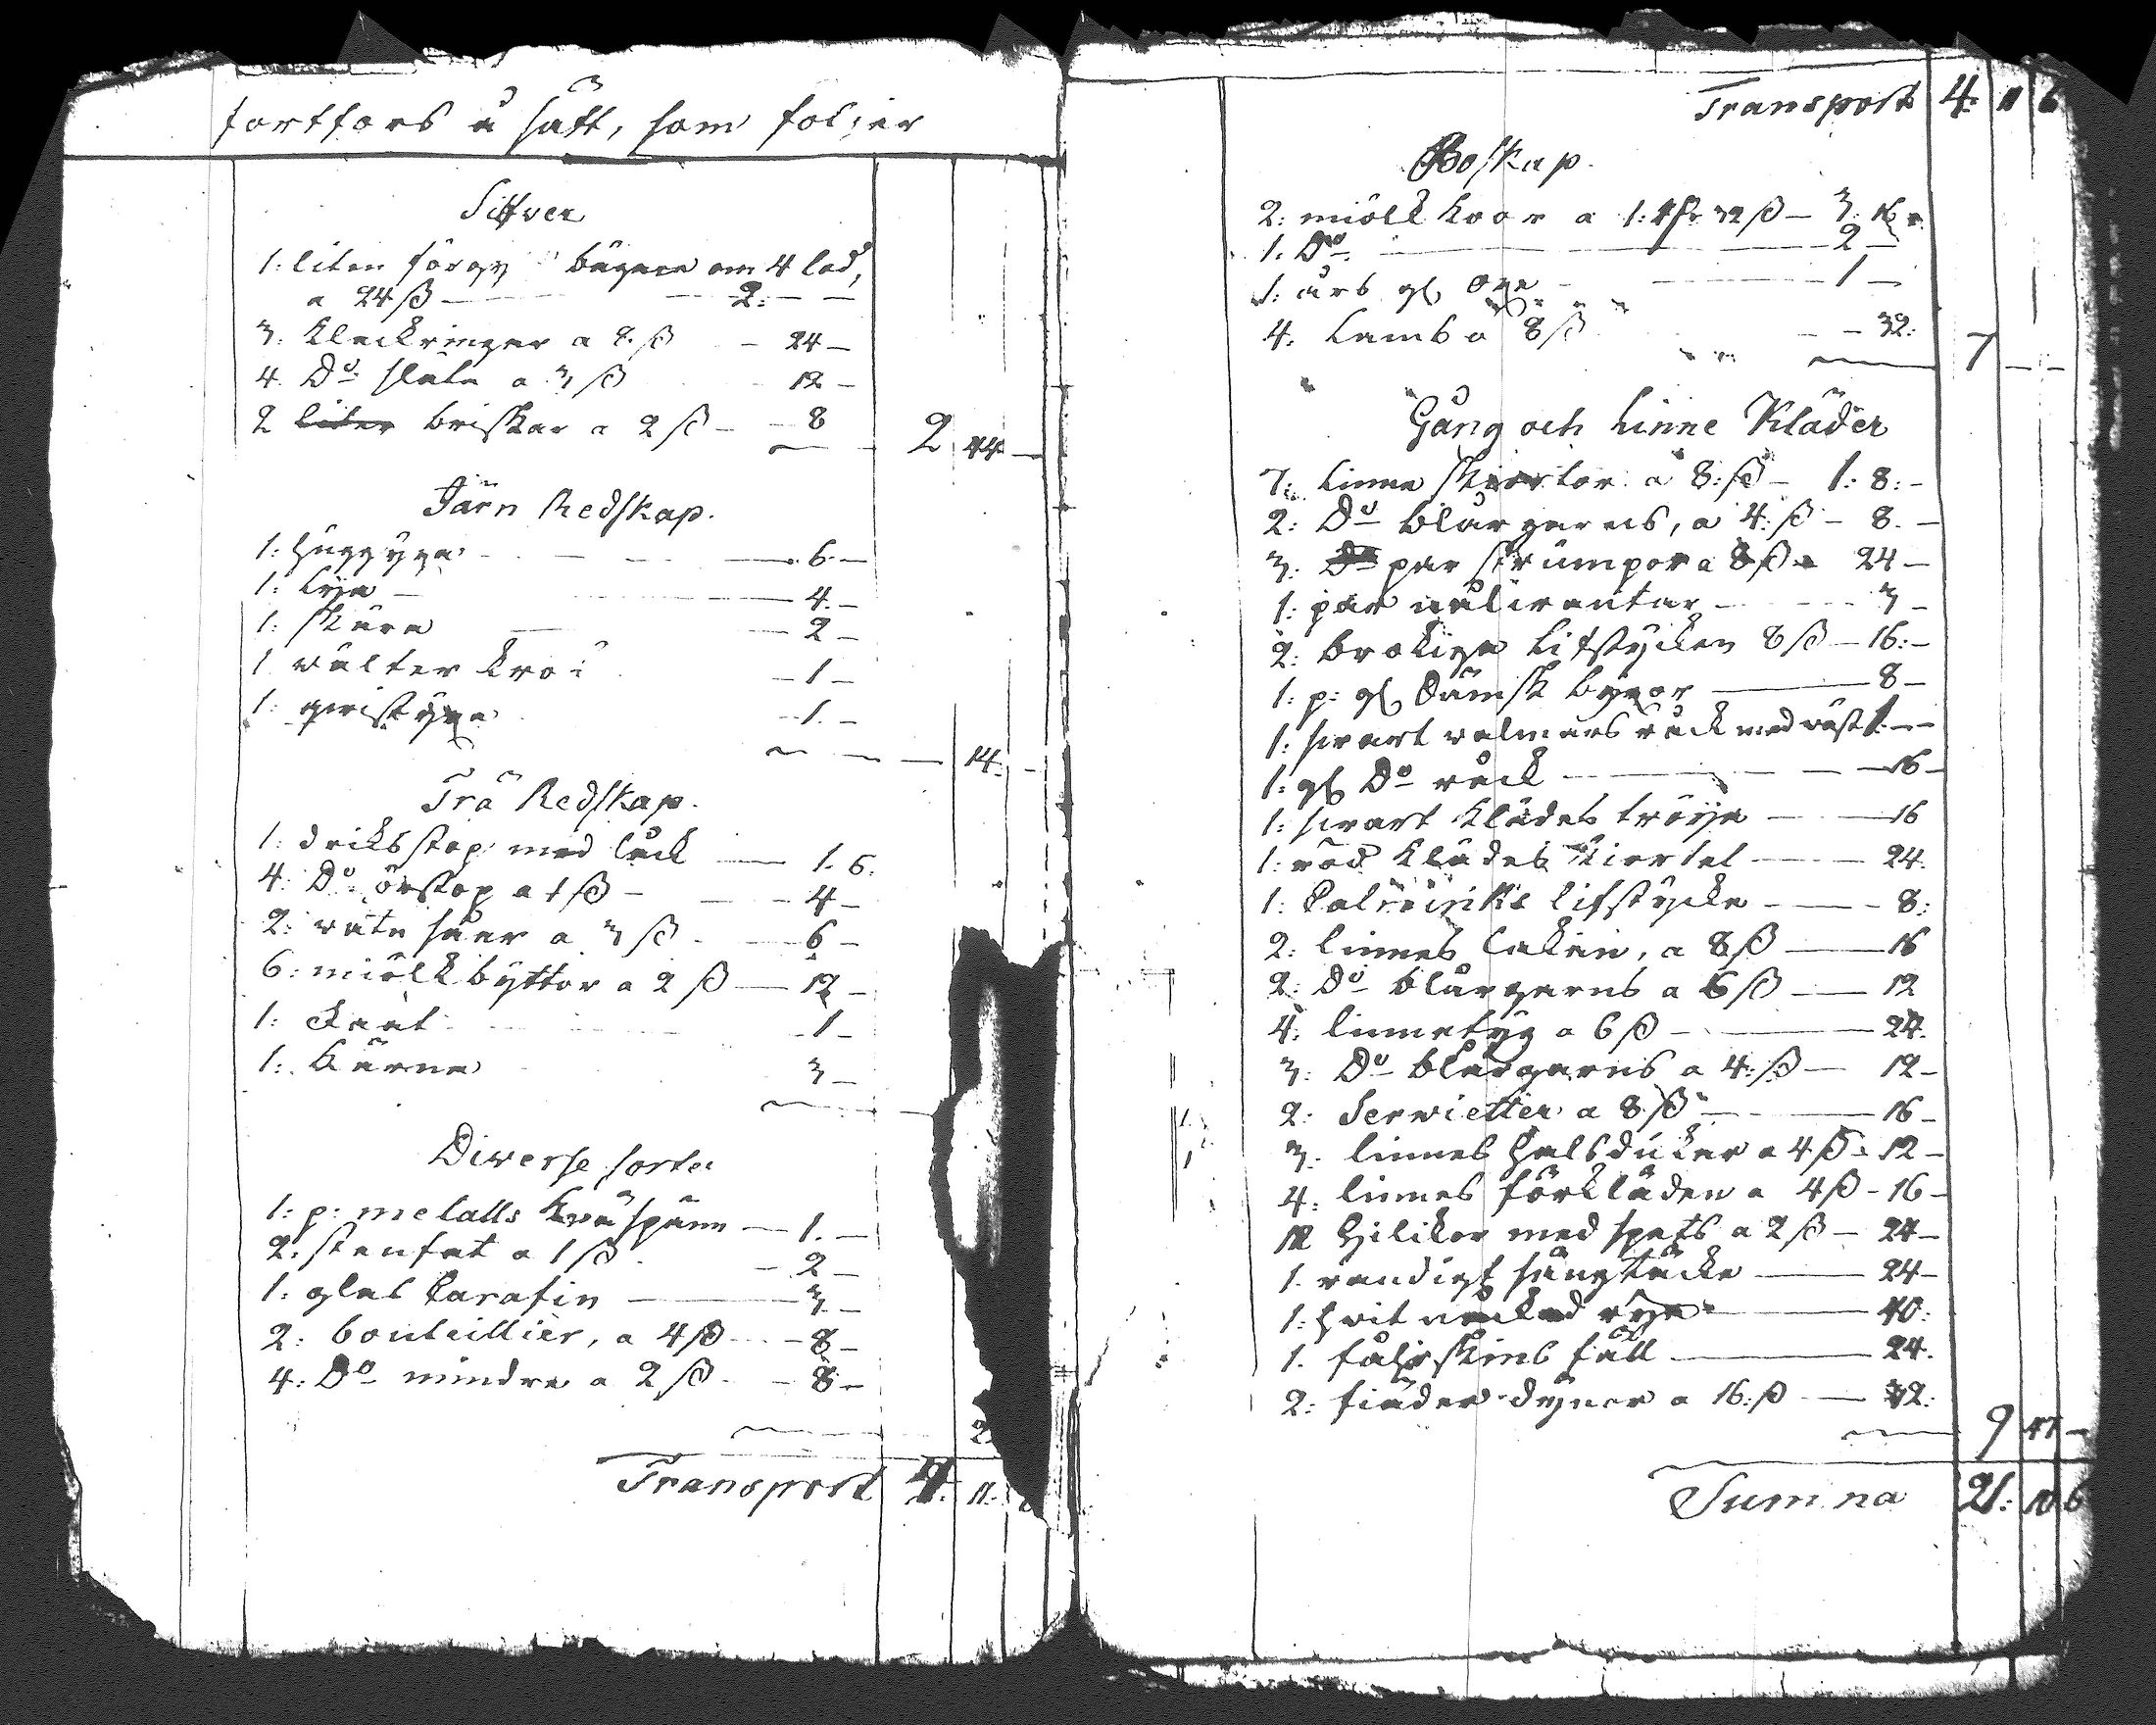 fortfors å sätt, som följer
Silfver
1: liten förgy bägare om 4 lod,
a 24 ß — 2: — —
3: Klackringar a 8 ß — 24 —
4. Do släta a 3 ß 12 —
2 liter briskar a 2 ß — 8
2 44 —
Järn Redskap.
1: huggyxa — 6. —
1: Lija — 4. —
1: skära — 2 —
1 — 1 —
1: — 1. —
14: —
Trä Redskap.
1: dricksstop med låck — 1. 6.
4: Do örstop a 1 ß — 4 —
2: vatu såar a 3 ß — 6 —
6: miölkbyttor a 2 ß — 12 —
1: — 1 —
1: Kärna 3 —
Diverse sorter
1: p: metalls Knäspänn — 1. —
2: stenfat a 1 ß — 2 —
1: glas Carafin — 3 —
2: bouteillier, a 4 ß — 8 —
4: Do mindre a 2 ß — 8 —
2
Transport 4: 11:
Transport 4: 11 6
Boskap.
2: miölk koor a 1: 32 ß — 3: 16
1. Do — 2 —
1: års gl. — 1 —
4. Lamb a 8 ß — 32:
7 — —
Gång och Linne Kläder
7: Linne skiortor a 8: ß — 1: 8: —
2: Do blårgarns, a 4: ß — 8. —
3: Do par strumpor a 8 ß 24 —
1: par — 3 —
2: brokiga Lifstycken 8 ß — 16: —
1: p: gl. byxor — 8 —
1: svart valmars råck med väst 1: — —
1: gl. Do råck — 16 —
1: svart Klädes tröija — 16
1: röd Klädes Kiortel — 24.
1: Calminks lifstycke — 8:
2: linnes lakan, a 8 ß — 16
2: Do blårgarns a 6 ß — 12
4: linnetyg a 6 ß — 24.
3: Do blårgarns a 4: ß — 12 —
2: Servietter a 8 ß — 16 —
3: linnes halsdukar a 4 ß — 12 —
4: linnes förkläden a 4 ß — 16 —
12 med spets a 2 ß — 24 —
1. randigt sängtäcke — 24 —
1: hvit — 40:
1. fåhrskins fäll — 24.
2: fiäder dynor a 16: ß — 32:
9 47 —
Summa 21: 10 6